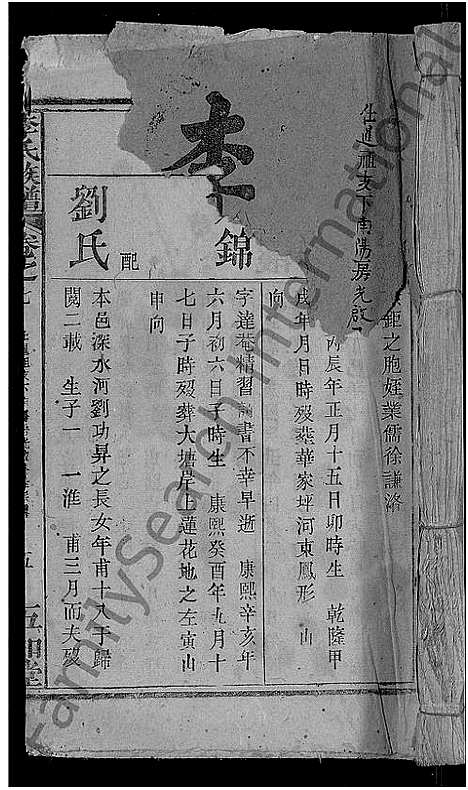 仕進祖支下南陽房先啟
鉅之胞姪業儒徐謙洛
丙辰年正月十五日卯時生 乾隆甲
戌年月日時歿葬華家坪河東鳳形 山
向
李
錦
字達菴精習詩書不幸早逝 康熙辛亥年
六月初六日子時生 康熙癸酉年九月十
七日子時歿葬大塘岸上蓮花地之左寅山
申向
劉氏
配
本邑深水河劉功昇之長女年甫十八于歸
閱二載 生子一 一淮 甫三月而夫歿
李氏族譜 卷之七
五
五和堂
FamilySearch International